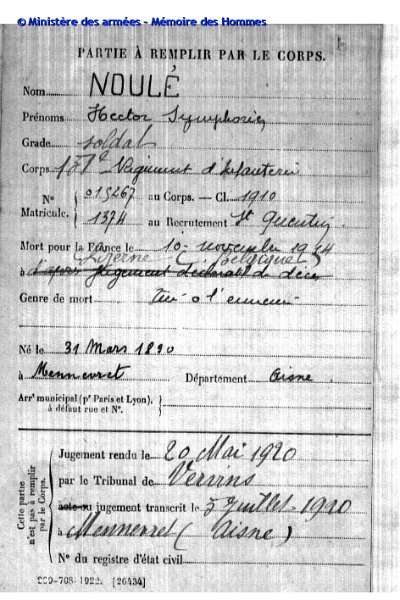 © Ministère des armées - Mémoire des Hommes
PARTIE À REMPLIR PAR LE CORPS.
Nom NOULÉ
Prénoms Hector Symphorien
Grade soldat
Corps Régiment d'Infanterie
N° 015267 au Corps. — Cl. 1910
Matricule. 1374 au Recrutement St Quentin
Mort pour la France le 10 novembre 1914
Lizerne (Belgique)
à d'après jugement déclaratif de décès
Genre de mort tué à l'ennemi
Né le 31 Mars 1890
à Mennevret Département Aisne
Arrt municipal (pr Paris et Lyon),
à défaut rue et N°.
Cette partie n'est pas à remplir par le Corps.
Jugement rendu le 20 Mai 1920
par le Tribunal de Vervins
acte ou jugement transcrit le 5 Juillet 1920
à Mennevret (Aisne)
N° du registre d'état civil
[26434]